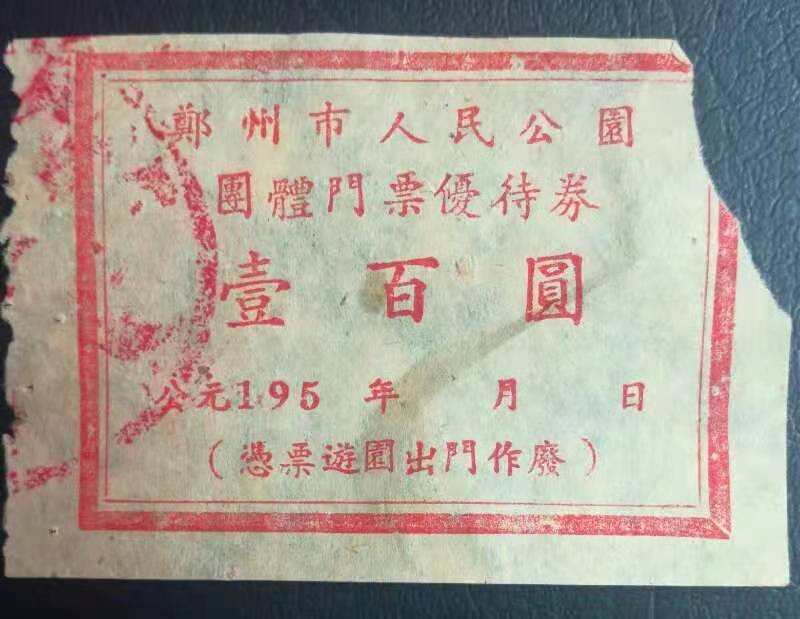 鄭州市人民公園
團體門票優待券
壹百圓
公元195 年 月 日
(憑票遊園出門作廢)